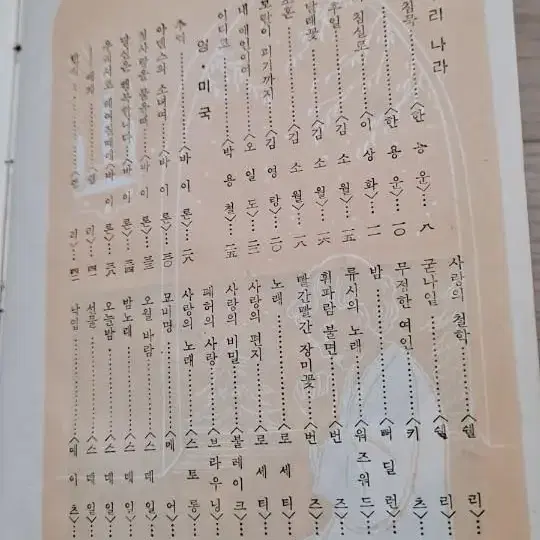 리 나라
침묵……<한 용 운>……八
……<한 용 운>……一○
침실로……<이 상 화>……一一
……<김 소 월>……一五
달래꽃……<김 소 월>……一六
초혼……<김 소 월>……一八
모란이 피기까지……<김 영 랑>……二○
내 애인이여……<오 일 도>……二三
어디로……<박 용 철>……二五
영·미국
추억……<바 이 론>……二八
아덴스의 소녀여……<바 이 론>……三○
<바 이 론>……三三
<바 이 론>……三四
우리서로 헤여질때에<바 이 론>……三六
리>……四一
리>……四二
사랑의 철학……<쉘 리>……
굳나일……<쉘 리>……
무정한 여인……<키 츠>……
밤……<뻐 딜 런>……
류시의 노래……<워 즈 워 드>……
휘파람 불면……<번 즈>……
빨간빨간 장미꽃……<번 즈>……
노래……<로 세 티>……
사랑의 편지……<로 세 티>……
사랑의 비밀……<불 레 이 크>……
폐허의 사랑……<브 라 우 닝>……
사랑의 노래……<스 토 롱>……
묘비명……<메 어>……
오월 바람……<스 데 일>……
밤노래……<스 데 일>……
오늘밤……<스 데 일>……
선물……<스 데 일>……
낙엽……<예 이 츠>……